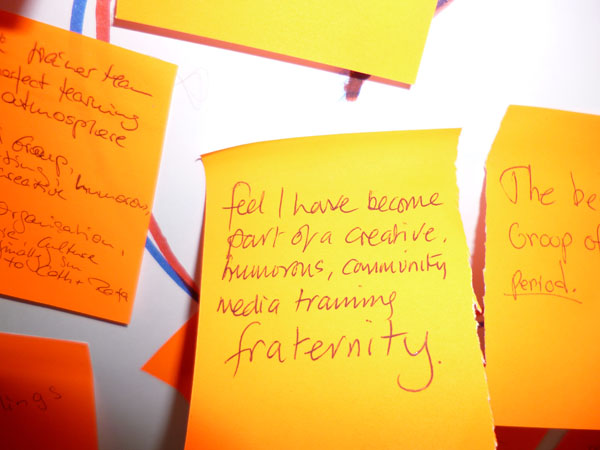 trainer team
perfect learning
atmosphere
Group, humorous,
creative
organisation,
Culture
to Cath +
lings
feel I have become
part of a creative,
humorous, community
media training
fraternity.
The be
Group of
period.